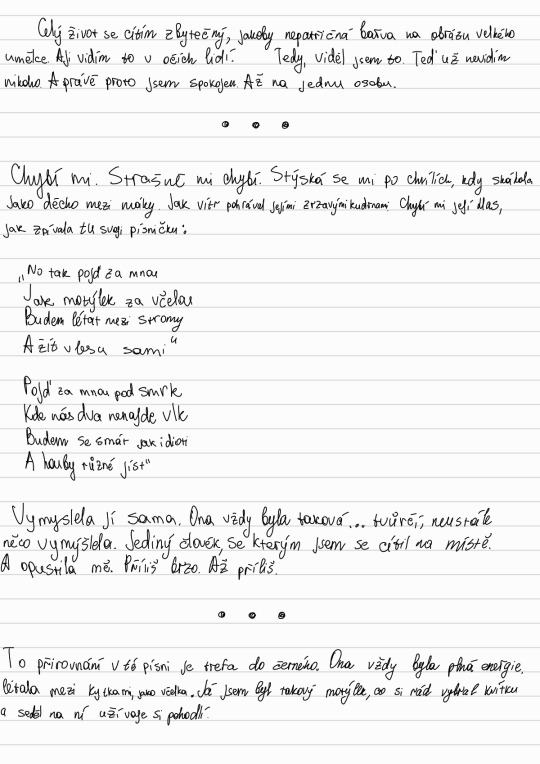 Celý život se cítím zbytečný, jakoby nepatřičná barva na obrazu velkého
umělce. Aji vidím to v očích lidí. Tedy, viděl jsem to. Teď už nevidím
nikoho. A právě proto jsem spokojen. Až na jednu osobu.
• • •
Chybí mi. Strašně mi chybí. Stýská se mi po chvílích, kdy skákala
jako děcko mezi máky. Jak vítr pohrával jejími zrzavými kudrnami Chybí mi její hlas,
jak zpívala tu svoji písničku:
„No tak pojď za mnou
Jak motýlek za včelou
Budem létat mezi stromy
A žít v lesu sami“
Pojď za mnou pod smrk
Kde nás dva nenajde vlk
Budem se smát jak idioti
A houby různé jíst“
Vymyslela jí sama. Ona vždy byla taková... tvůrčí, neustále
něco vymýšlela. Jediný člověk, se kterým jsem se cítil na místě.
A opustila mě. Příliš brzo. Až příliš.
• • •
To přirovnání v té písni je trefa do černého. Ona vždy byla plná energie,
létala mezi kytkami, jako včelka. Já jsem byl takový motýlek, co si rád vybral kvítku
a seděl na ní užívaje si pohodlí.